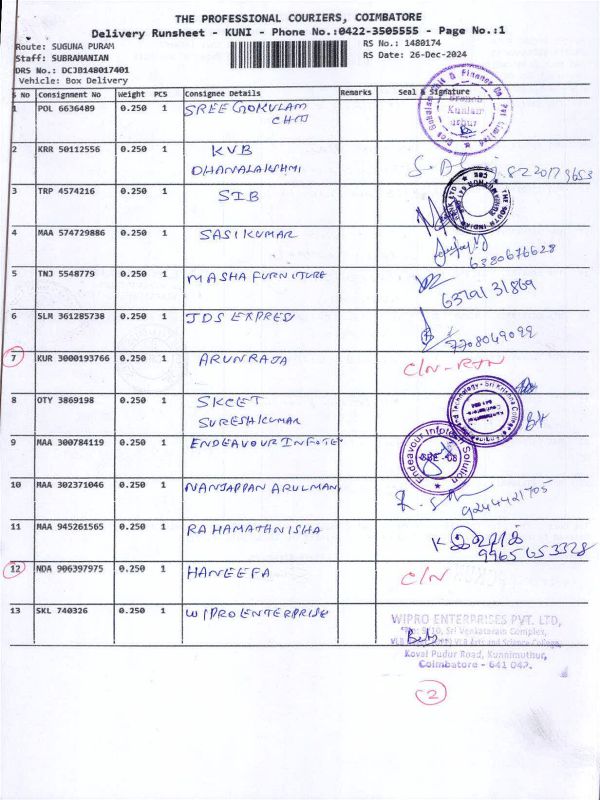 THE PROFESSIONAL COURIERS, COIMBATORE
Delivery Runsheet - KUNI - Phone No.:0422-3505555 - Page No.:1
Route: SUGUNA PURAM RS No.: 1480174
Staff: SUBRAMANIAN RS Date: 26-Dec-2024
DRS No.: DCJB148017401
Vehicle: Box Delivery
S No Consignment No Weight PCS Consignee Details Remarks Seal & Signature
1 POL 6636489 0.250 1 SREE GOKULAM
CHIT
2 KRR 50112556 0.250 1 KVB
DHANALAKSHMI
3 TRP 4574216 0.250 1 SIB
4 MAA 574729886 0.250 1 SASIKUMAR
6380676628
5 TNJ 5548779 0.250 1 MASHA FURNITURE
6 SLM 361285738 0.250 1 JDS EXPRES
7708049099
7 KUR 3000193766 0.250 1 ARUNRAJA C/N-RTN
8 OTY 3869198 0.250 1 SKCET
SURESHKUMAR
9 MAA 300784119 0.250 1 ENDEAVOUR INFOTE
Endeavour Infotech Solution
10 MAA 302371046 0.250 1 NANJAPPAN ARULMANI
9244421705
11 MAA 945261565 0.250 1 RAHAMATHNISHA
9965653328
12 NDA 906397975 0.250 1 HANEEFA C/N
13 SKL 740326 0.250 1 WIPRO ENTERPRISE
WIPRO ENTERPRISES PVT. LTD,
Sri Venkataram Complex,
VLB Arts and Science College,
Kovai Pudur Road, Kunnimuthur,
Coimbatore - 641 042.
2